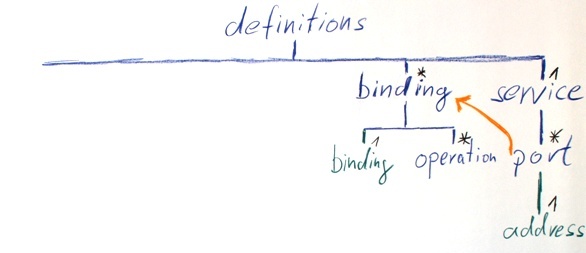 definitions
binding * service 1
binding 1 operation * port *
address 1